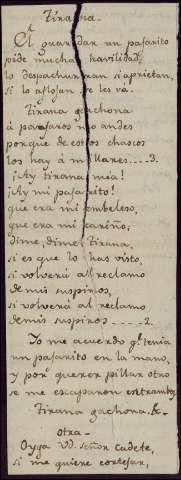 Tirana.
El guardar un pajarito
pide mucha havilidad,
lo despachurran si aprietan,
si lo aflojan se les vá.
Tirana gachona
á pararos no andes
porque de estos chascos
los hay á millares....3.
¡Ay tirana mia!
¡Ay mi pajarito!
que era mi embeleso,
que era mi cariño;
dime, dime, tirana,
si es que lo has visto,
si volverá al reclamo
de mis suspiros,
si volverá al reclamo
de mis suspiros.....2.
Yo me acuerdo q.e tenia
un pajarito en la mano,
y por querer pillar otro
se me escaparon entrambos
Tirana gachona. &.
Otra.
Oyga Vd. señor Cadete,
si me quiere cortejar,